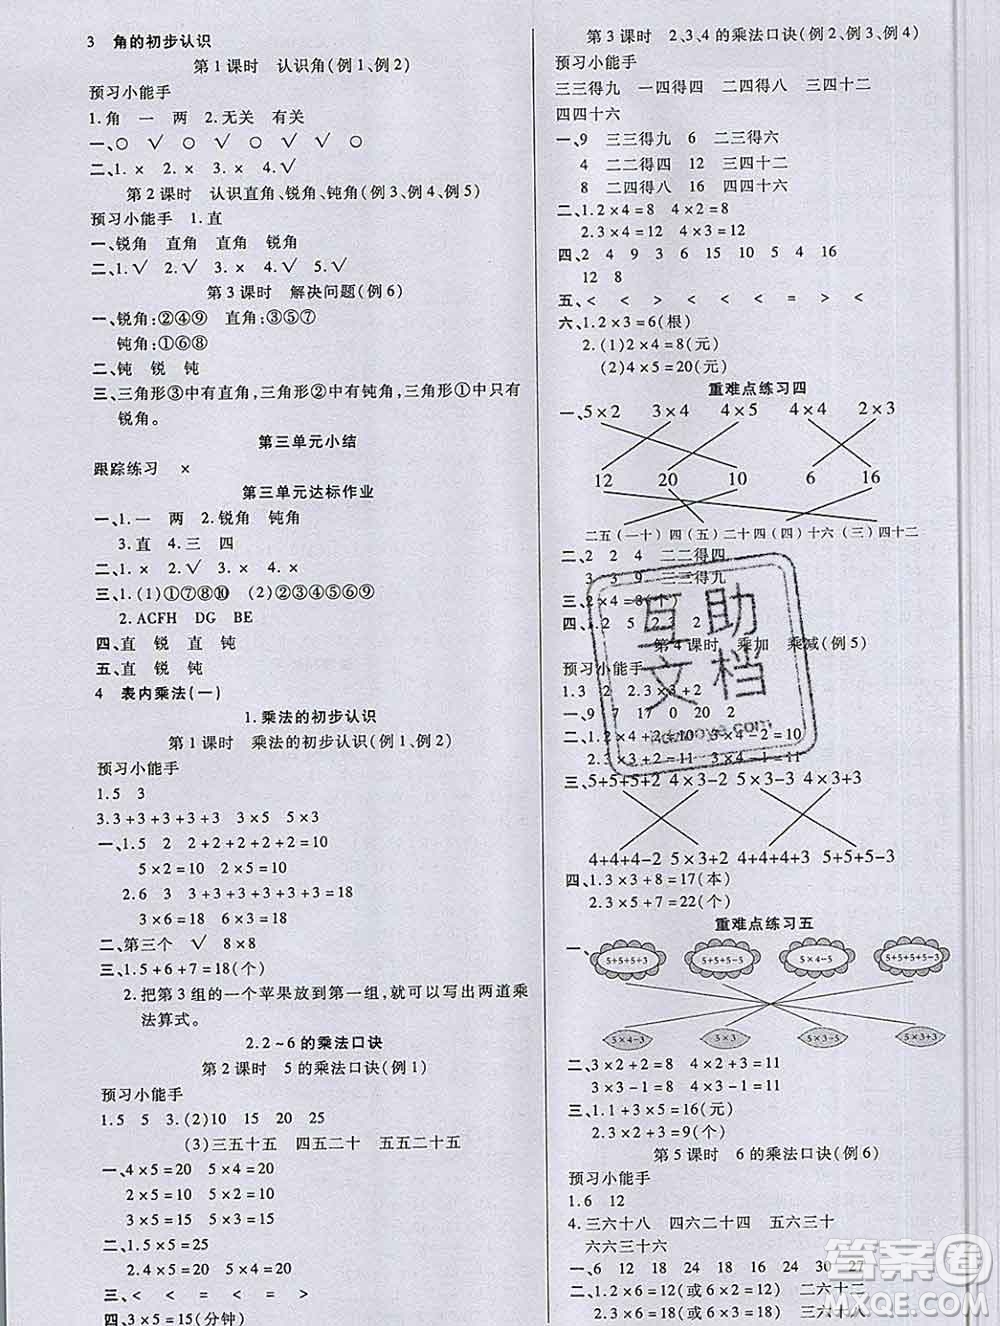 3 角的初步认识
第1课时 认识角(例1、例2)
预习小能手
1.角 一 两 2.无关 有关
一、○ √ ○ √ √ √ ○
二、1.× 2.× 3.× 4.√
第2课时 认识直角、锐角、钝角(例3、例4、例5)
预习小能手 1.直
一、锐角 直角 直角 锐角
二、1.√ 2.√ 3.× 4.× 5.√
第3课时 解决问题(例6)
一、锐角:②④⑨ 直角:③⑤⑦
钝角:①⑥⑧
二、钝 锐 钝
三、三角形③中有直角,三角形②中有钝角,三角形①中只有
锐角。
第三单元小结
跟踪练习 ×
第三单元达标作业
一、1.一 两 2.锐角 钝角
3.直 4.三 四
二、1.√ 2.× 3.× 4.×
三、1.(1)①⑦⑧⑩ (2)②③④⑤⑥⑨
2.ACFH DG BE
四、直 锐 直 钝
五、直 钝 锐 钝
4 表内乘法(一)
1.乘法的初步认识
第1课时 乘法的初步认识(例1、例2)
预习小能手
1.5 3
3.3+3+3+3+3 3×5 5×3
一、1.5 2 2+2+2+2+2=10
5×2=10 2×5=10
2.6 3 3+3+3+3+3+3=18
3×6=18 6×3=18
二、第三个 √ 8×8
三、1.5+6+7=18(个)
2.把第3组的一个苹果放到第一组,就可以写出两道乘
法算式。
2.2~6的乘法口诀
第2课时 5的乘法口诀(例1)
预习小能手
1.5 5 3.(2)10 15 20 25
(3)三五十五 四五二十 五五二十五
一、4×5=20 5×4=20
2×5=10 5×2=10
3×5=15 5×3=15
二、1.5×5=25
2.4×5=20 5×4=20
三、< = < < = >
四、3×5=15(分钟)
第3课时 2、3、4的乘法口诀(例2、例3、例4)
预习小能手
三三得九 一四得四 二四得八 三四十二
四四十六
一、9 三三得九 6 二三得六
4 二二得四 12 三四十二
8 二四得八 16 四四十六
二、1.2×4=8 4×2=8
2.3×4=12 4×3=12
四、2 4 9 3 6 15 10 5 15 16
12 8
五、< < > < < < = > <
六、1.2×3=6(根)
2.(1)2×4=8(元)
(2)4×5=20(元)
重难点练习四
一、5×2 3×4 4×5 4×4 2×3
12 20 10 6 16
二五(一十) 四(五)二十 四(四)十六 (三)四十二
二、2 2 4 二二得四
3 3 9 三三得九
三、2×4=8(个)
四、1.2 5 2.3 2
第4课时 乘加 乘减(例5)
预习小能手
1.3 2 2.3×3+2
一、9 7 17 0 20 2
二、1.2×4+2=10 3×4-2=10
2.3×3+2=11 3×4-1=11
三、5+5+5 4×3-2 5×3-2 4×3+3
4+4+4-2 5×3+2 4+4+4+3 5+5+5-3
四、1.3×3+8=17(本)
2.3×5+7=22(个)
重难点练习五
一、5+5+5+3 5+5+5-5 5×4-5 5+5+5+5-3
5×4-3 5×3 5×3-5 5×3+3
二、3×2+2=8 4×2+3=11
3×3-1=8 3×4-1=11
三、1.1+3×5=16(元)
2.3×2+3=9(个)
第5课时 6的乘法口诀(例6)
预习小能手
1.6 12
4.三六十八 四六二十四 五六三十
六六三十六
一、6 12 18 23 16 18 24 30 27
二、1.2×6=12(或6×2=12) 二六十二
2.3×6=18(或6×3=18) 三六十八
互助
文档
答案圈
MXQE.COM